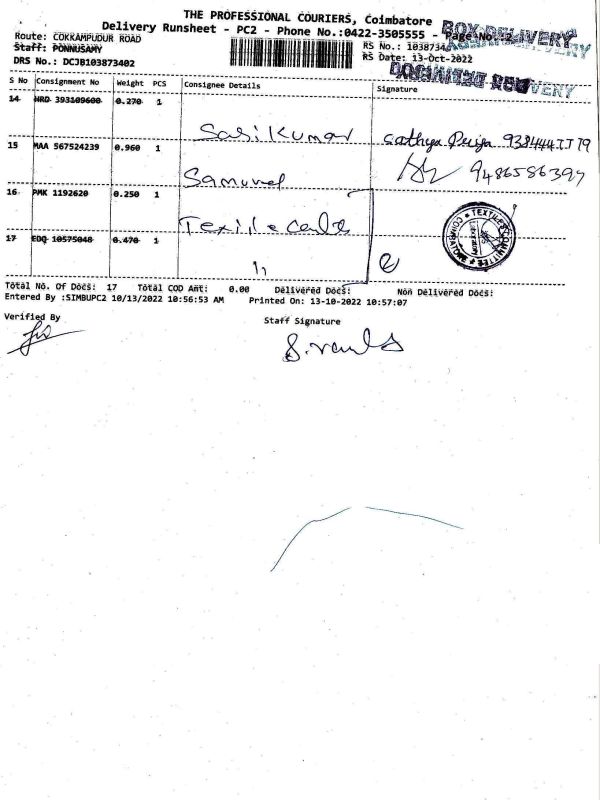 THE PROFESSIONAL COURIERS, Coimbatore
Delivery Runsheet - PC2 - Phone No.:0422-3505555 - Page No.:2
BOX DELIVERY
Route: COKKAMPUDUR ROAD
Staff: PONNUSAMY
DRS No.: DCJB103873402
RS No.: 1038734
RS Date: 13-Oct-2022
S No Consignment No Weight PCS Consignee Details Signature
14 HRD 393109600 0.270 1
Sasikumar Sathya Priya
15 MAA 567524239 0.960 1
Samuvel 9486586397
16 PMK 1192620 0.250 1
Textile
TEXTILES COMMITTEE COIMBATORE
17 EDQ 10575048 0.470 1
Total No. Of Docs: 17 Total COD Amt: 0.00 Delivered Docs: Non Delivered Docs:
Entered By :SIMBUPC2 10/13/2022 10:56:53 AM Printed On: 13-10-2022 10:57:07
Verified By Staff Signature